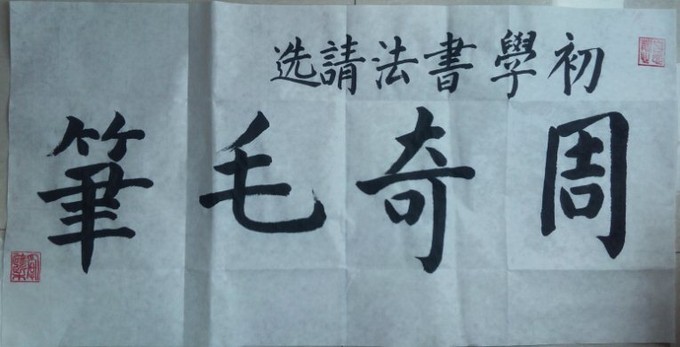 初學書法請选
周奇毛筆